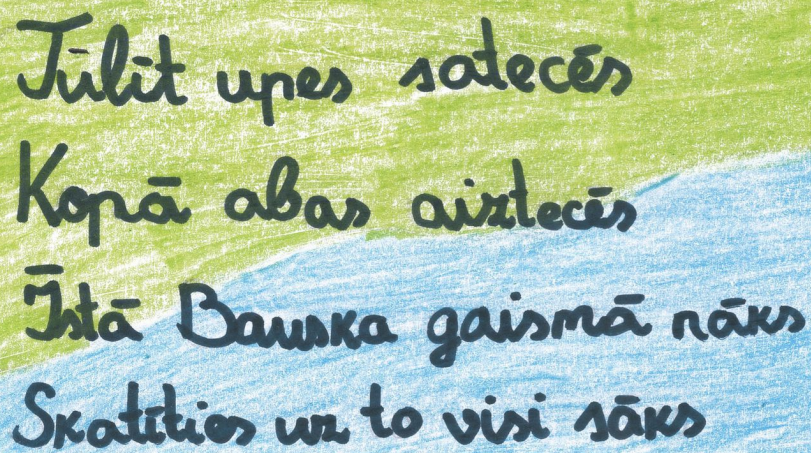 Tūlīt upes satecēs
Kopā abas aiztecēs
Īstā Bauska gaismā nāks
Skatīties uz to visi sāks